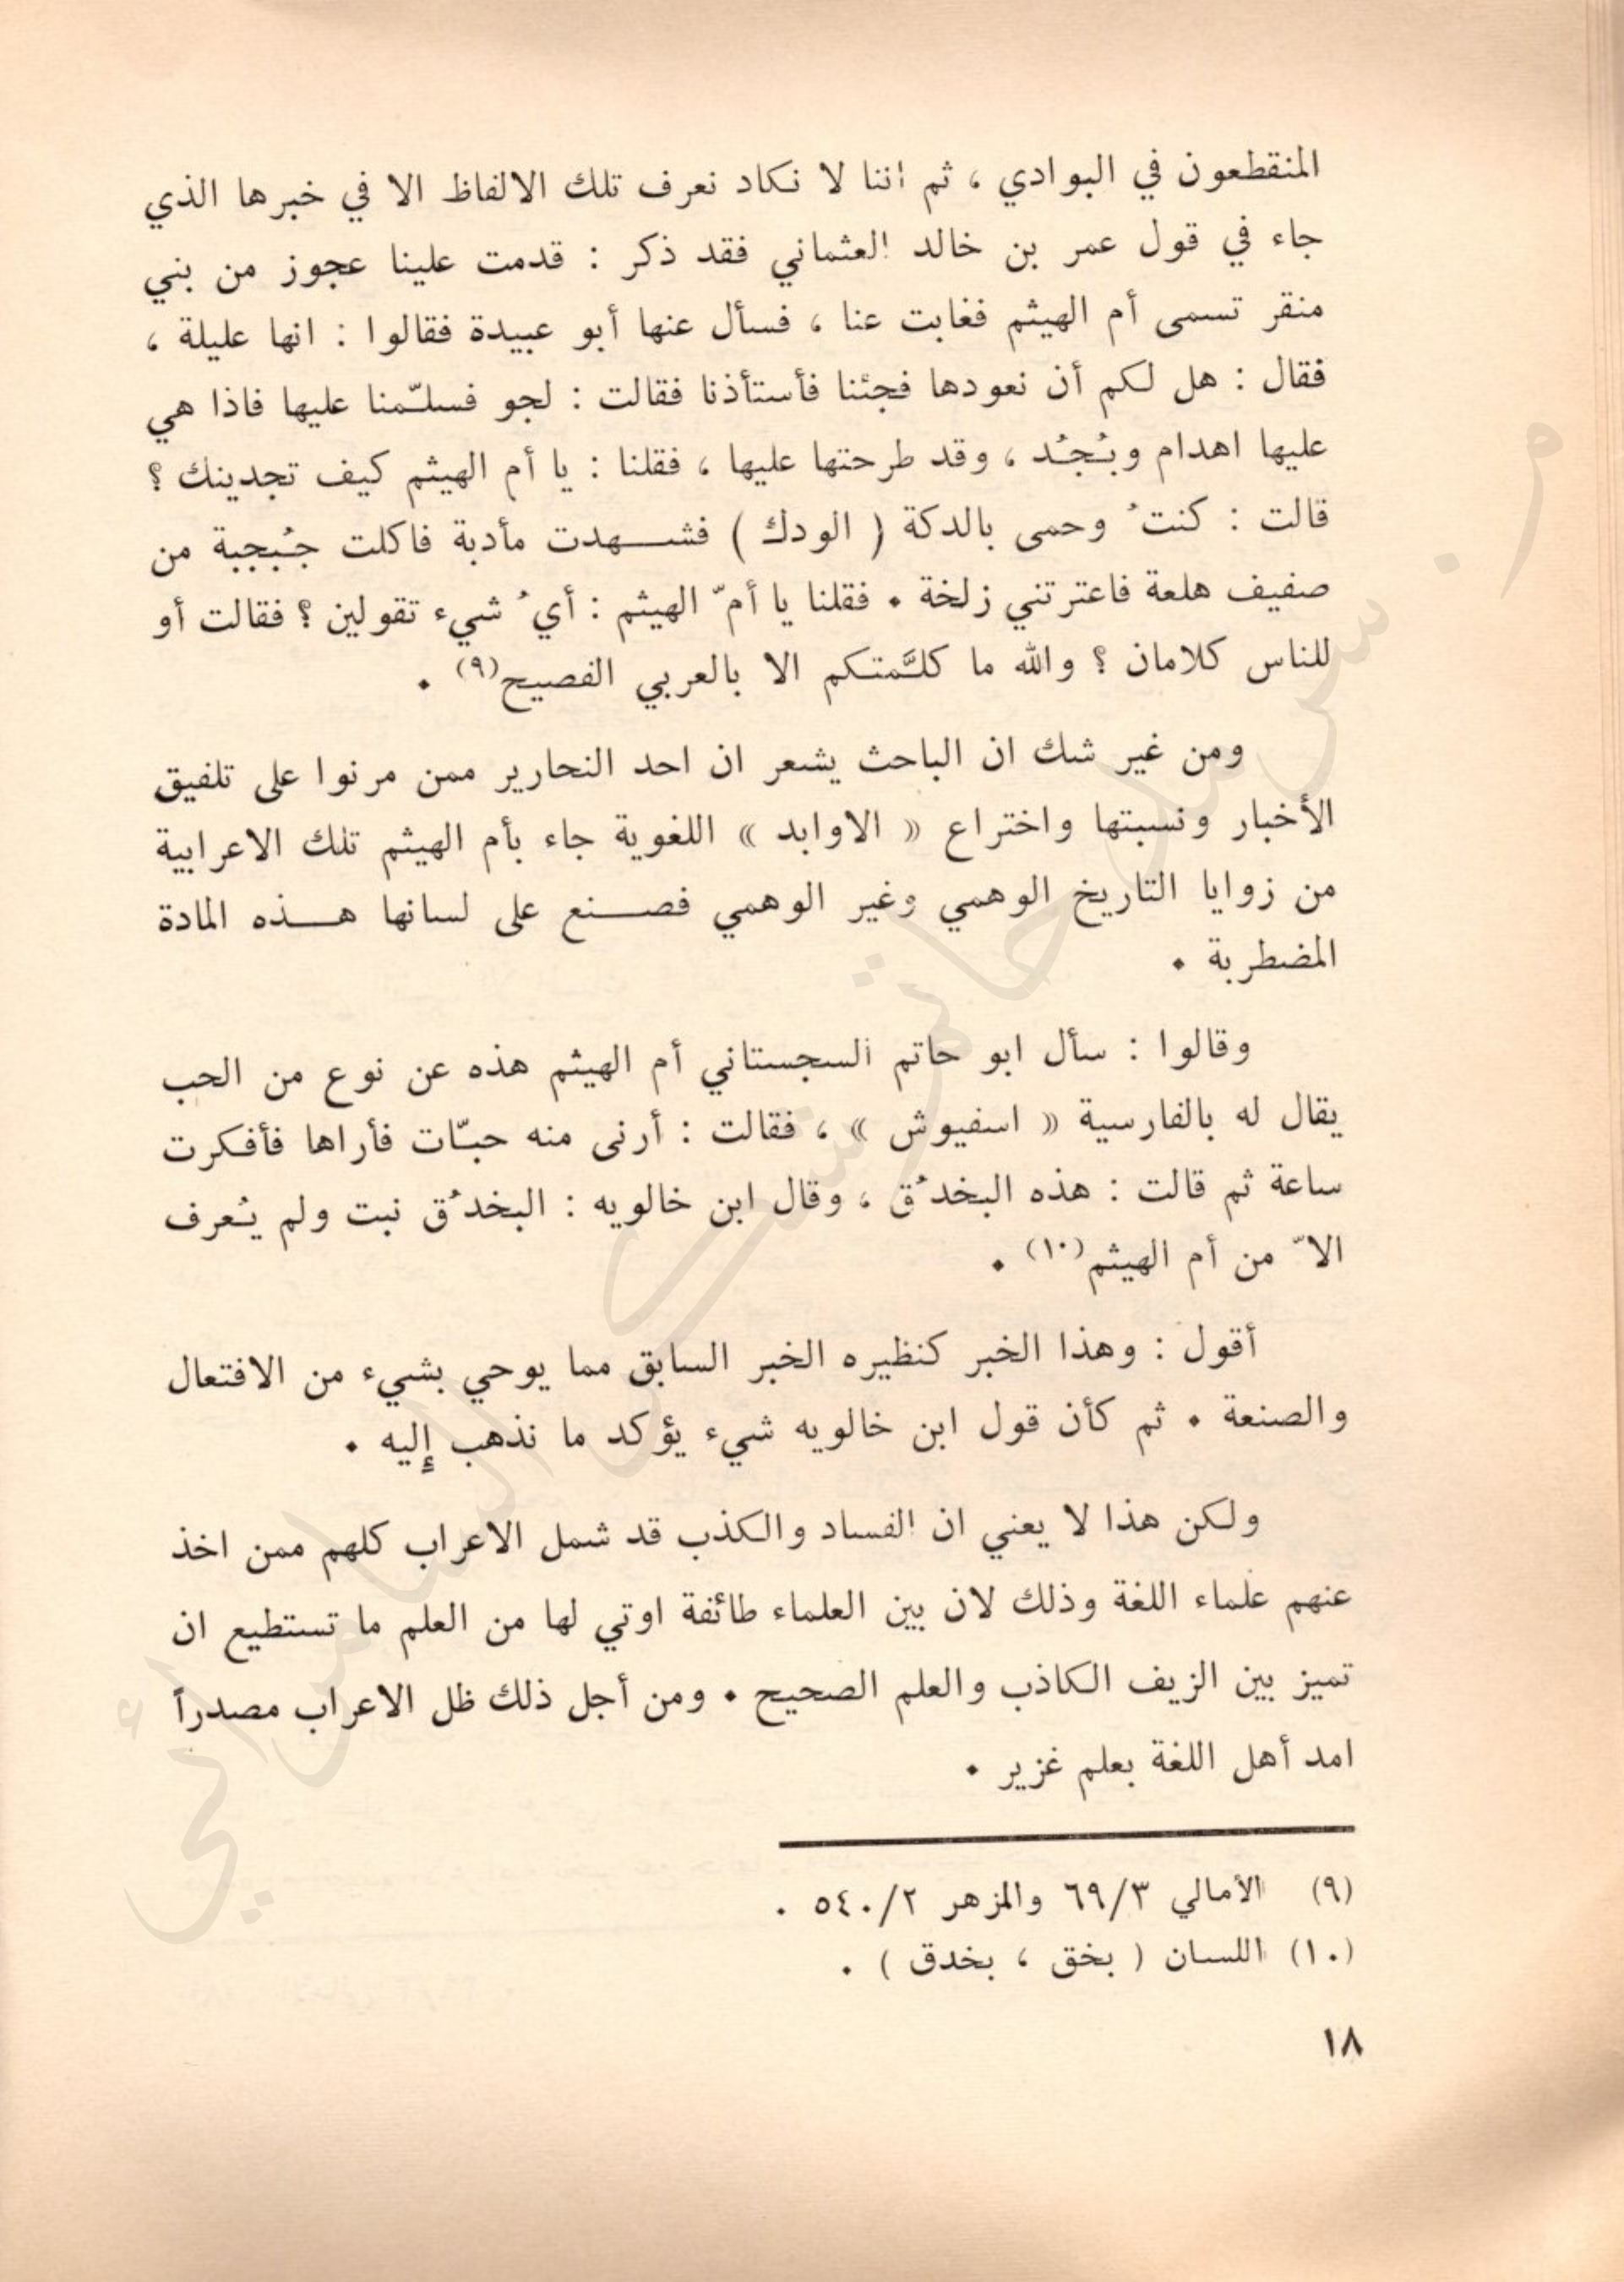 المنقطعون في البوادي ، ثم اننا لا نكاد نعرف تلك الالفاظ الا في خبرها الذي
جاء في قول عمر بن خالد العثماني فقد ذكر : قدمت علينا عجوز من بني
منقر تسمى أم الهيثم فغابت عنا ، فسأل عنها أبو عبيدة فقالوا : انها عليلة ،
فقال : هل لكم أن نعودها فجئنا فأستأذنا فقالت : لجو فسلّمنا عليها فاذا هي
عليها اهدام وبُجُد ، وقد طرحتها عليها ، فقلنا : يا أم الهيثم كيف تجدينك ؟
قالت : كنتُ وحمى بالدكة ( الودك ) فشهدت مأدبة فاكلت جُبجبة من
صفيف هلعة فاعترتني زلخة . فقلنا يا أمّ الهيثم : أيُ شيء تقولين ؟ فقالت أو
للناس كلامان ؟ والله ما كلَّمتكم الا بالعربي الفصيح(٩) .
ومن غير شك ان الباحث يشعر ان احد النحارير ممن مرنوا على تلفيق
الأخبار ونسبتها واختراع « الاوابد » اللغوية جاء بأم الهيثم تلك الاعرابية
من زوايا التاريخ الوهمي وغير الوهمي فصنع على لسانها هذه المادة
المضطربة .
وقالوا : سأل ابو حاتم السجستاني أم الهيثم هذه عن نوع من الحب
يقال له بالفارسية « اسفيوش » ، فقالت : أرنى منه حبّات فأراها فأفكرت
ساعة ثم قالت : هذه البخدُق ، وقال ابن خالويه : البخدُق نبت ولم يُعرف
الاّ من أم الهيثم(١٠) .
أقول : وهذا الخبر كنظيره الخبر السابق مما يوحي بشيء من الافتعال
والصنعة . ثم كأن قول ابن خالويه شيء يؤكد ما نذهب إليه .
ولكن هذا لا يعني ان الفساد والكذب قد شمل الاعراب كلهم ممن اخذ
عنهم علماء اللغة وذلك لان بين العلماء طائفة اوتي لها من العلم ما تستطيع ان
تميز بين الزيف الكاذب والعلم الصحيح . ومن أجل ذلك ظل الاعراب مصدراً
امد أهل اللغة بعلم غزير .
(٩) الأمالي ٦٩/٣ والمزهر ٥٤٠/٢ .
(١٠) اللسان ( بخق ، بخدق ) .
١٨